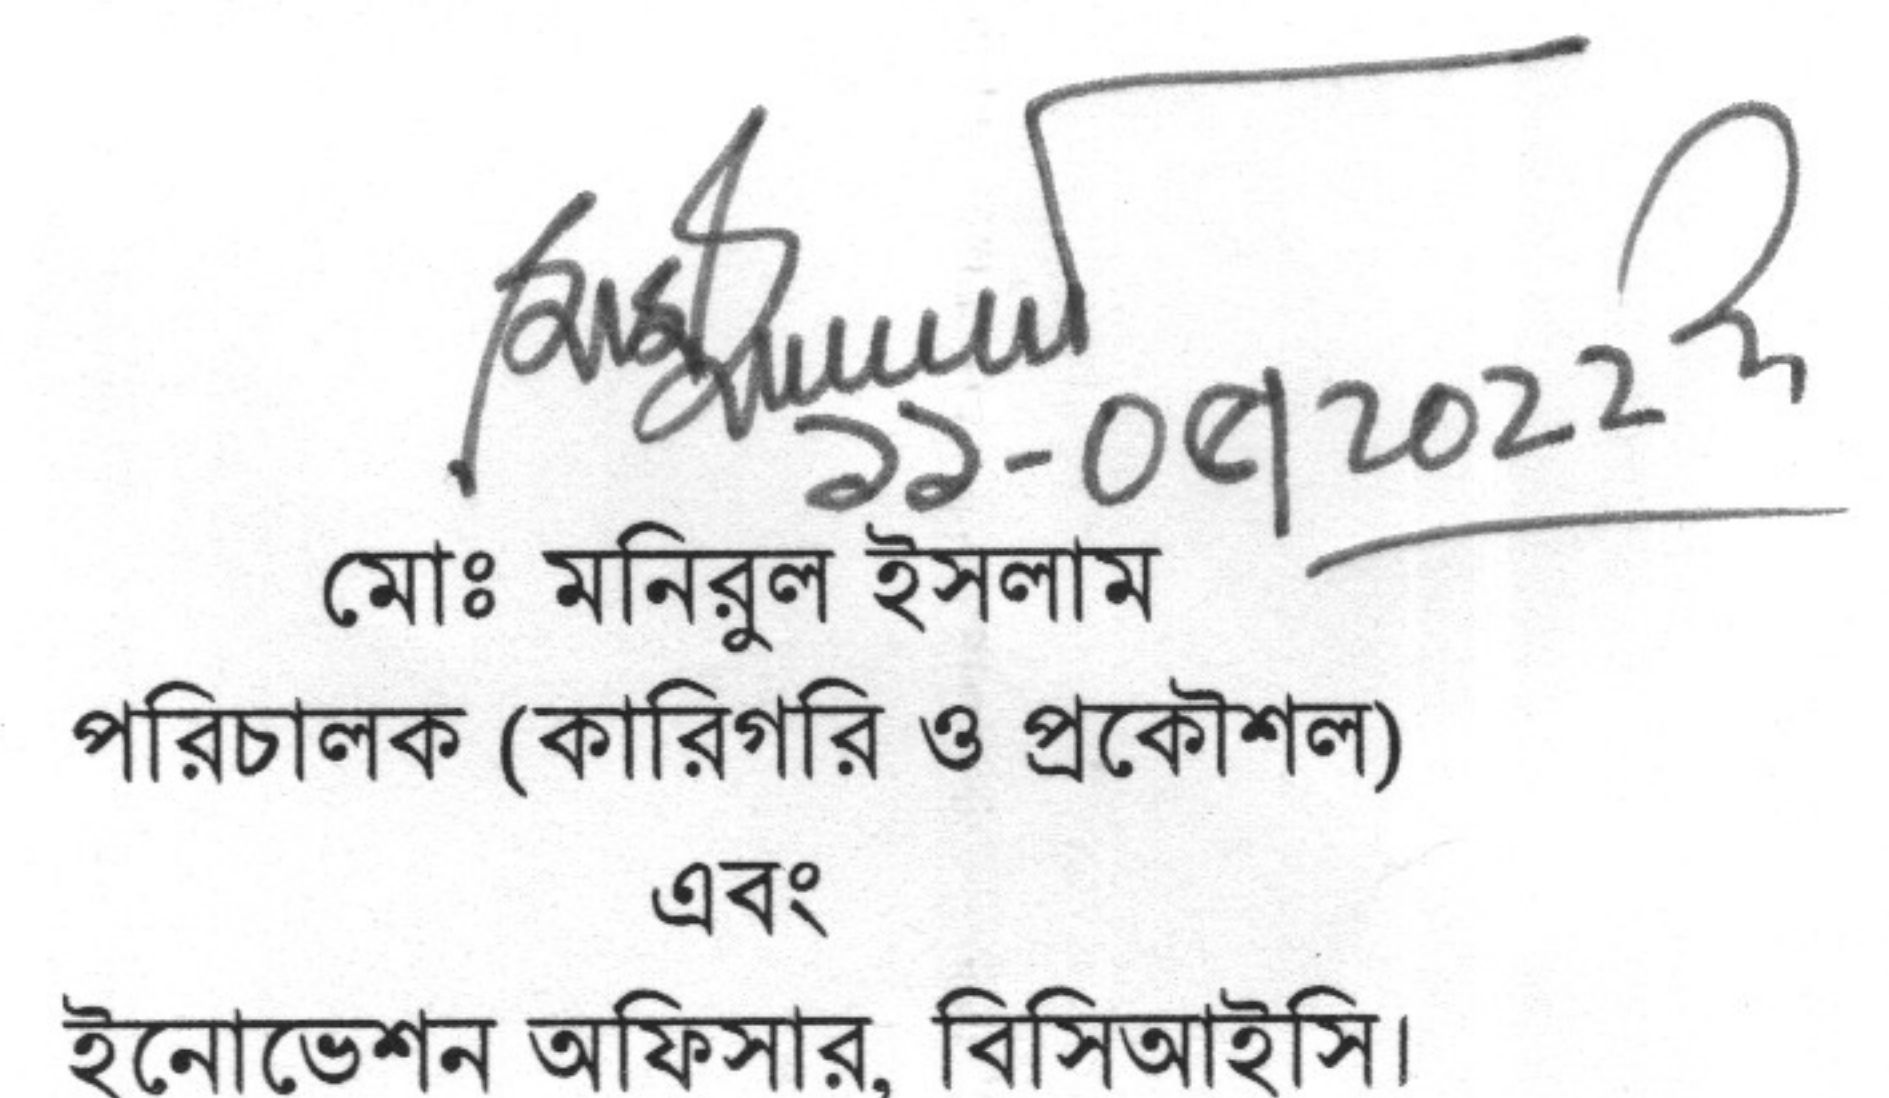 ১১-০৫/2022 ইং
মোঃ মনিরুল ইসলাম
পরিচালক (কারিগরি ও প্রকৌশল)
এবং
ইনোভেশন অফিসার, বিসিআইসি।